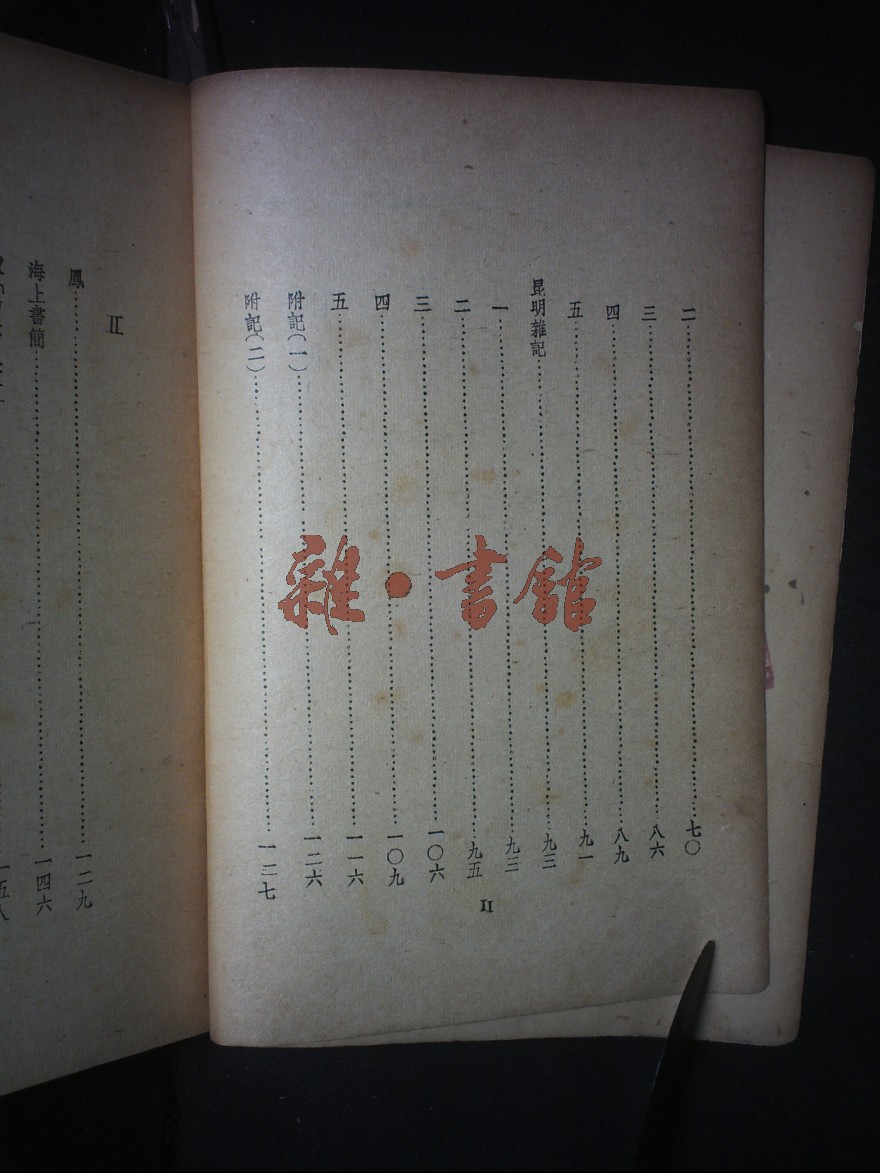 二……七〇
三……八六
四……八九
五……九一
昆明雜記……九三
一……九三
二……九五
三……一〇六
四……一〇九
五……一一六
附記(一)……一二六
附記(二)……一二七
II
雜·書館
II
鳳……一二九
海上書簡……一四六
一五八